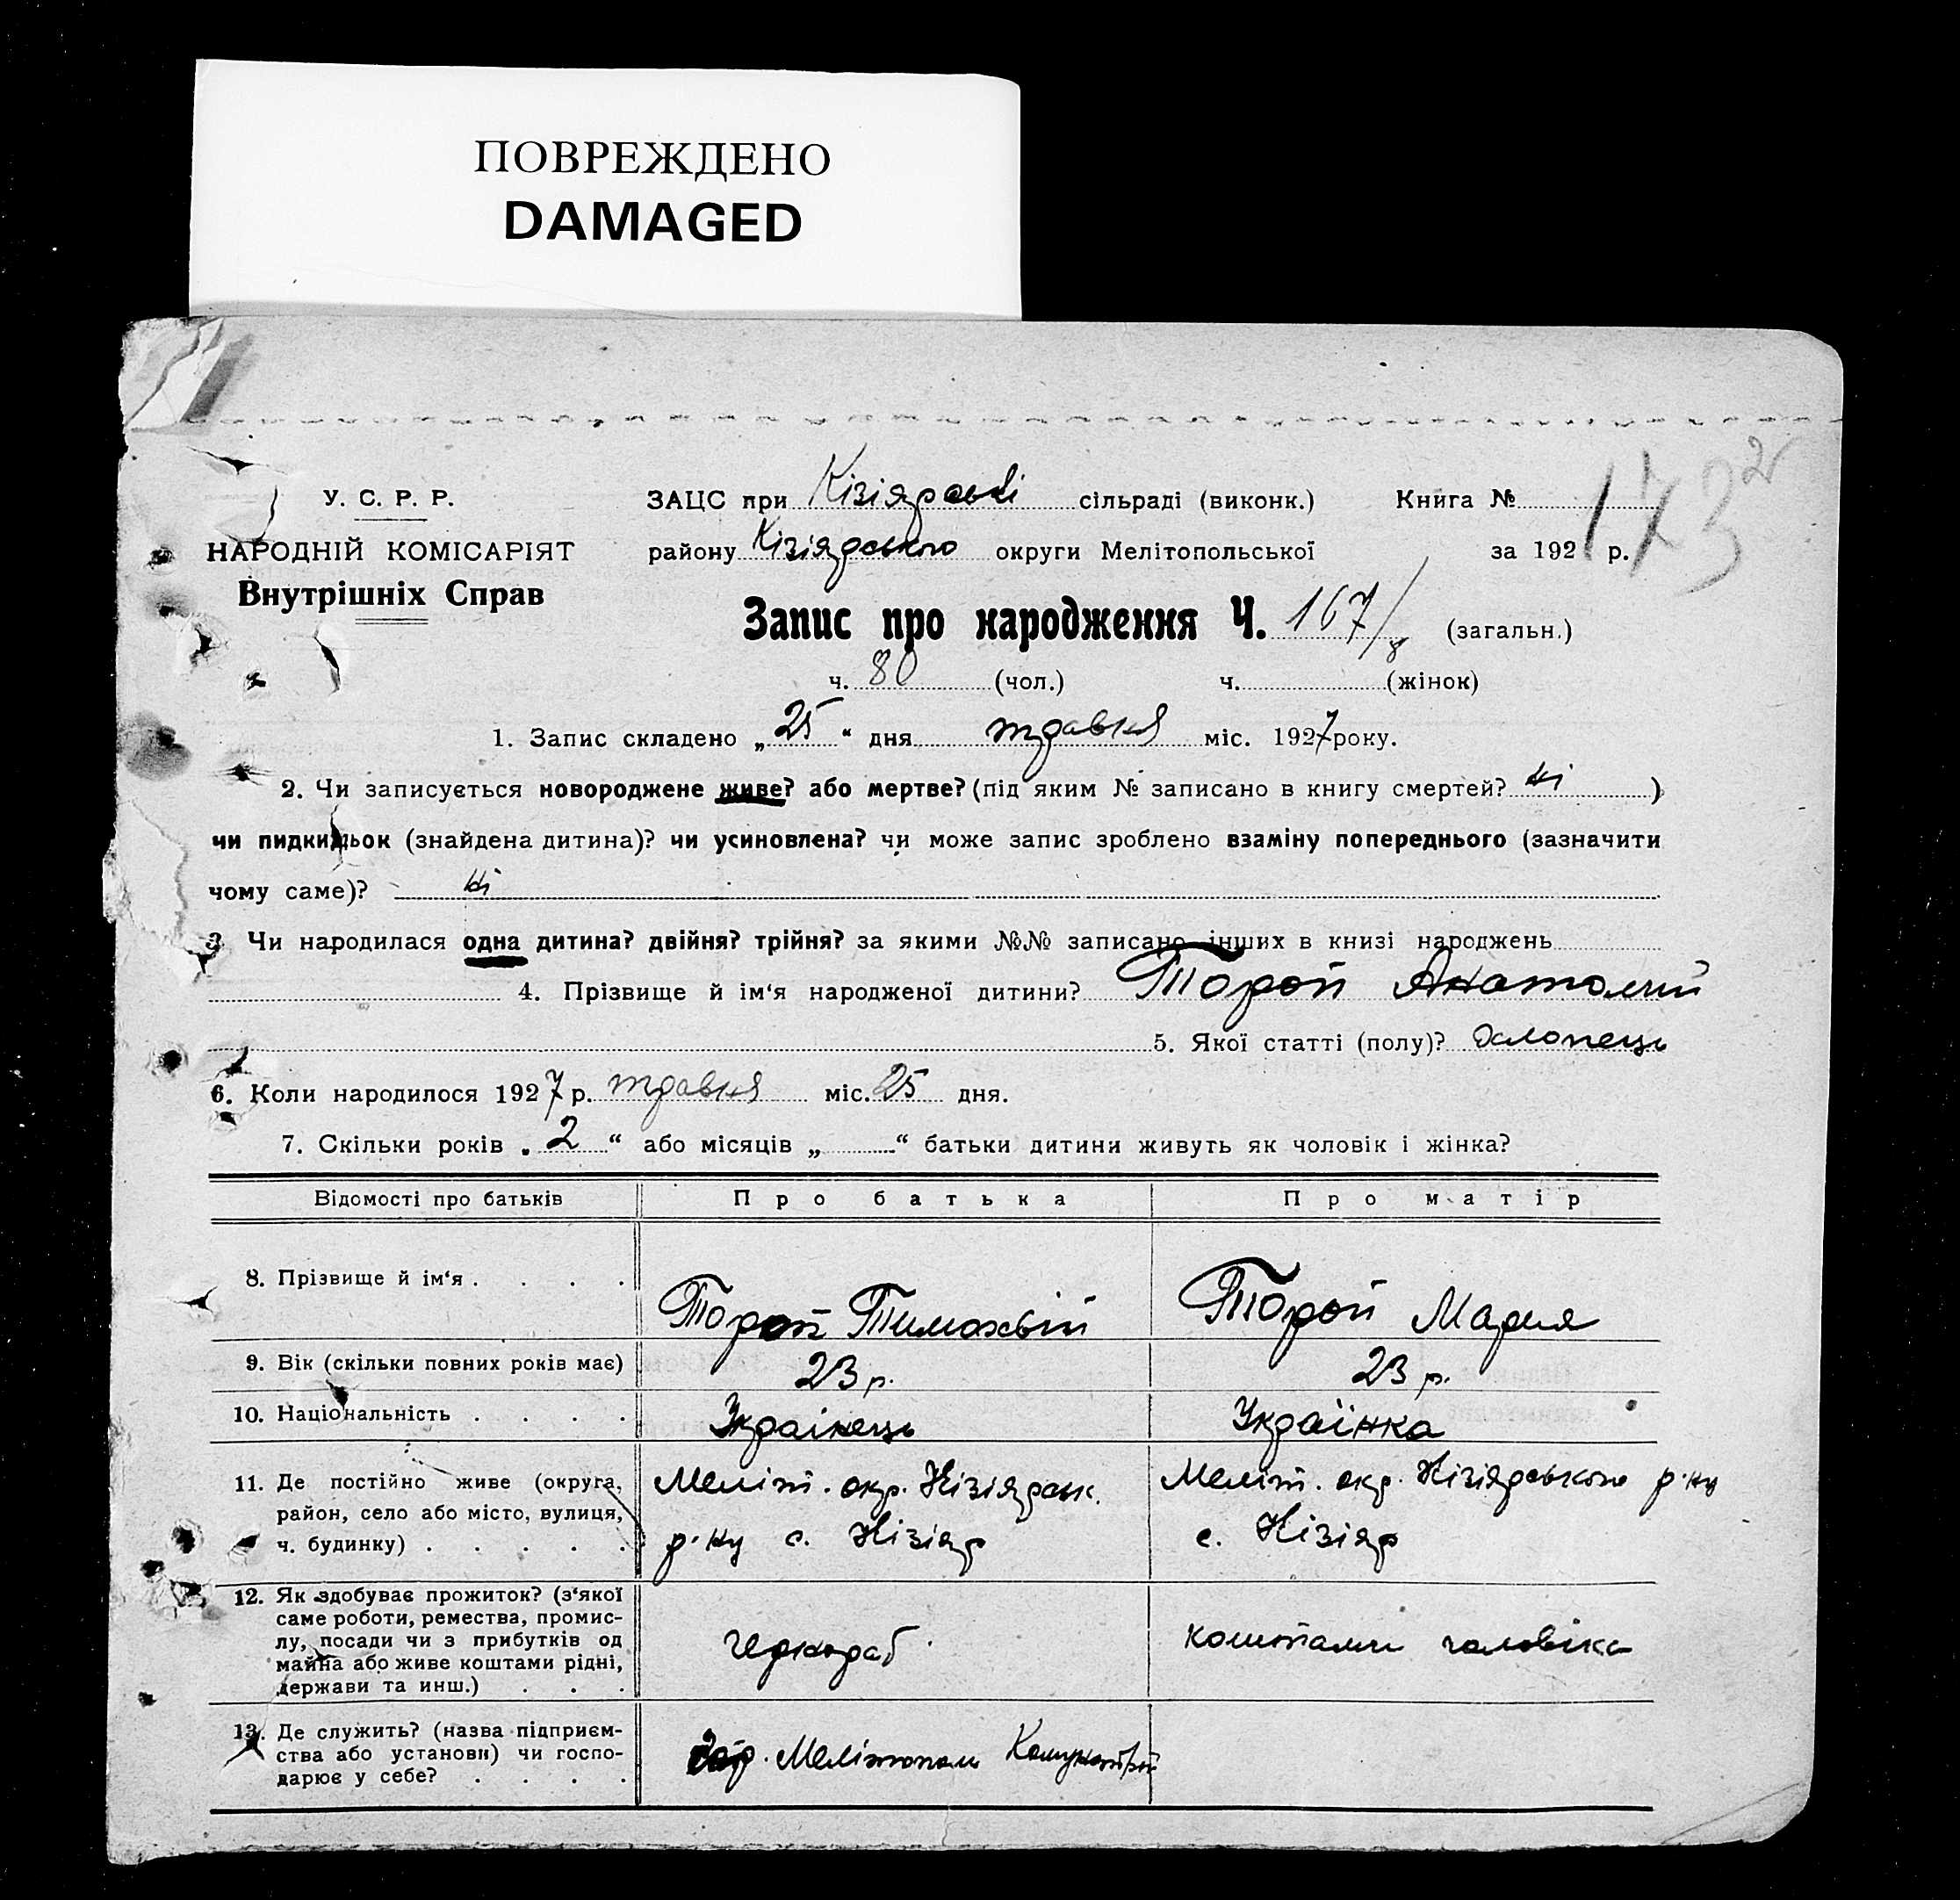 ПОВРЕЖДЕНО
DAMAGED
У. С. Р. Р.
НАРОДНІЙ КОМІСАРІЯТ
Внутрішніх Справ
ЗАЦС при Кізіярські сільраді (виконк.) Книга №
району Кізіярського округи Мелітопольської за 192 р.
173
Запис про народження Ч. 167/8 (загальн.)
ч. 80 (чол.) ч. (жінок)
1. Запис складено „25“ дня травня міс. 1927 року.
2. Чи записується новороджене живе? або мертве? (під яким № записано в книгу смертей? ні )
чи пидкидьок (знайдена дитина)? чи усиновлена? чи може запис зроблено взаміну попереднього (зазначити
чому саме)? ні
3. Чи народилася одна дитина? двійня? трійня? за якими №№ записано інших в книзі народжень
4. Прізвище й ім‘я народженої дитини? Тороп Анатолий
5. Якої статті (полу)? Хлопець
6. Коли народилося 1927 р. травня міс. 25 дня.
7. Скільки років „2“ або місяців „ “ батьки дитини живуть як чоловік і жінка?
Відомості про батьків Про батька Про матір
8. Прізвище й ім‘я . . . . Тороп Тимохвій Тороп Мария
9. Вік (скільки повних років має) 23 р. 23 р.
10. Національність . . . . Українець Українка
11. Де постійно живе (округа, район, село або місто, вулиця, ч. будинку) . . . . .
Меліт. окр. Кізіярськ. р-ну с. Кізіяр
Меліт. окр. Кізіярського р-ну с. Кізіяр
12. Як здобуває прожиток? (з‘якої
саме роботи, ремества, промис-
лу, посади чи з прибутків од
майна або живе коштами рідні,
держави та инш.) . . .
чернораб.
коштами чоловіка
13. Де служить? (назва підприєм-
ства або установи) чи госпо-
дарює у себе? . . . .
гор. Мелітополь